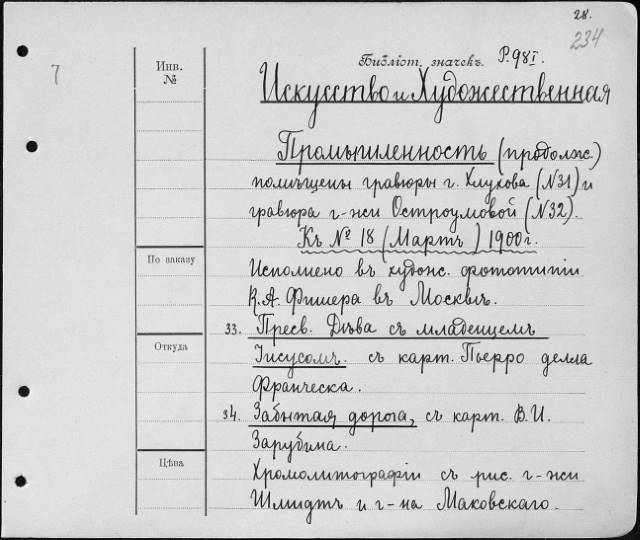 28.
234
7
Инв. №
Библіот. значекъ. Р.98 I.
Искусство и Художественная
Промышленность (продолж.)
помѣщены гравюры г. Клукова (N31) и
гравюра г-жи Остроумовой (N32).
Къ № 18 (Мартъ) 1900 г.
По заказу
Исполнено въ худож. фототипіи
К.А. Фишера въ Москвѣ.
33. Пресв. Дѣва съ младенцемъ
Откуда
Іисусомъ. съ карт. Пьерро делла
Франческа.
34. Забытая дорога, съ карт. В.И.
Зарубина.
Цѣна
Хромолитографіи съ рис. г-жи
Шмидтъ и г-на Маковскаго.